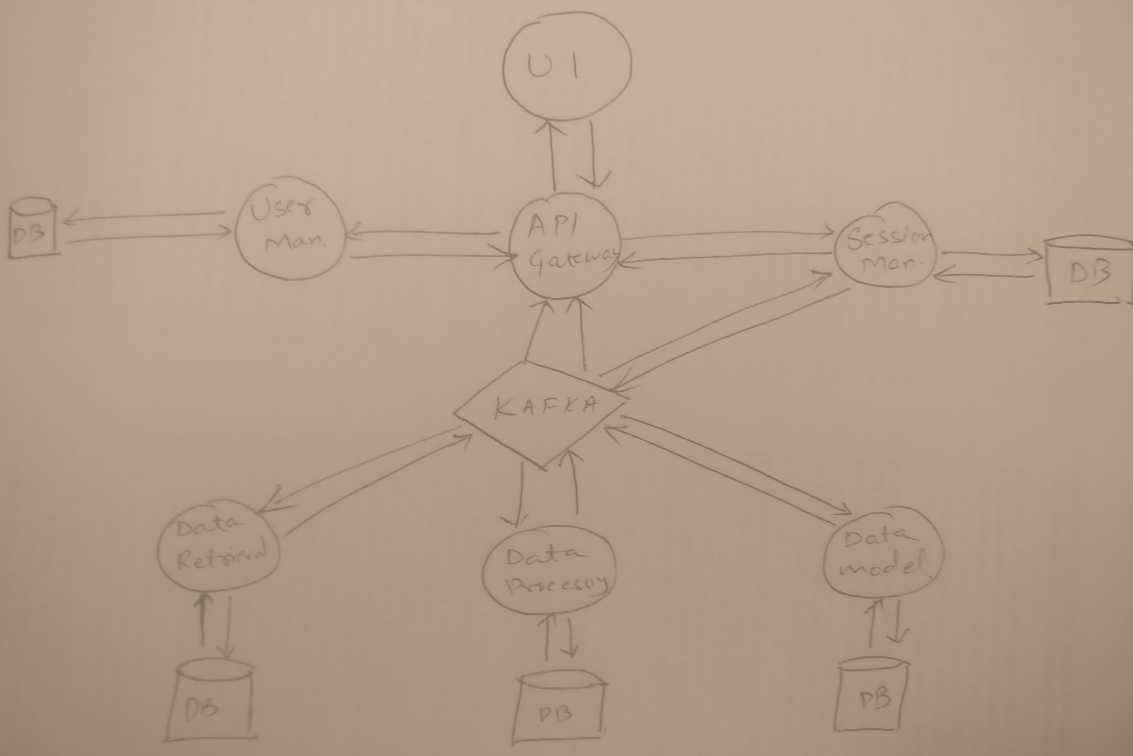 UI
User
Man.
API
Gateway
Session
Man.
DB
DB
KAFKA
Data
Retrieval
Data
Processing
Data
Model
DB
DB
DB